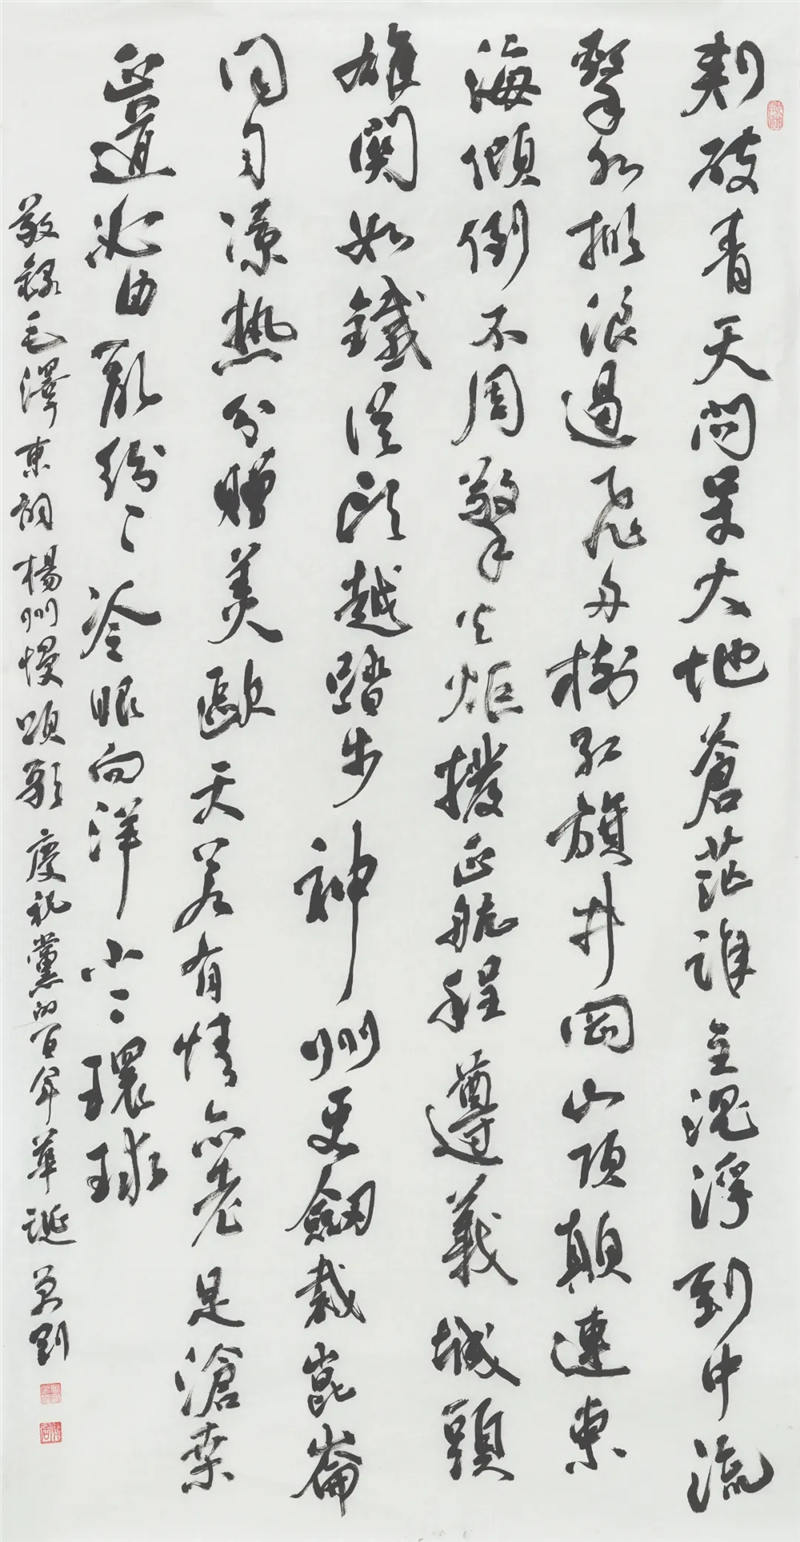 刺破青天問大地蒼茫誰主沉浮到中流
擊水掀浪遏飛舟樹紅旗井岡山頂顛連東
海傾倒不周擎火炬撥正航程遵義城頭
雄關如鐵從頭越踏步神州更劍裁崑崙
同自涼熱分贈美歐天若有情亦老是滄桑
正道必由亂紛々冷眼向洋小々環球
敬錄毛澤東詞楊州慢頌歌慶祝黨的百年華誕